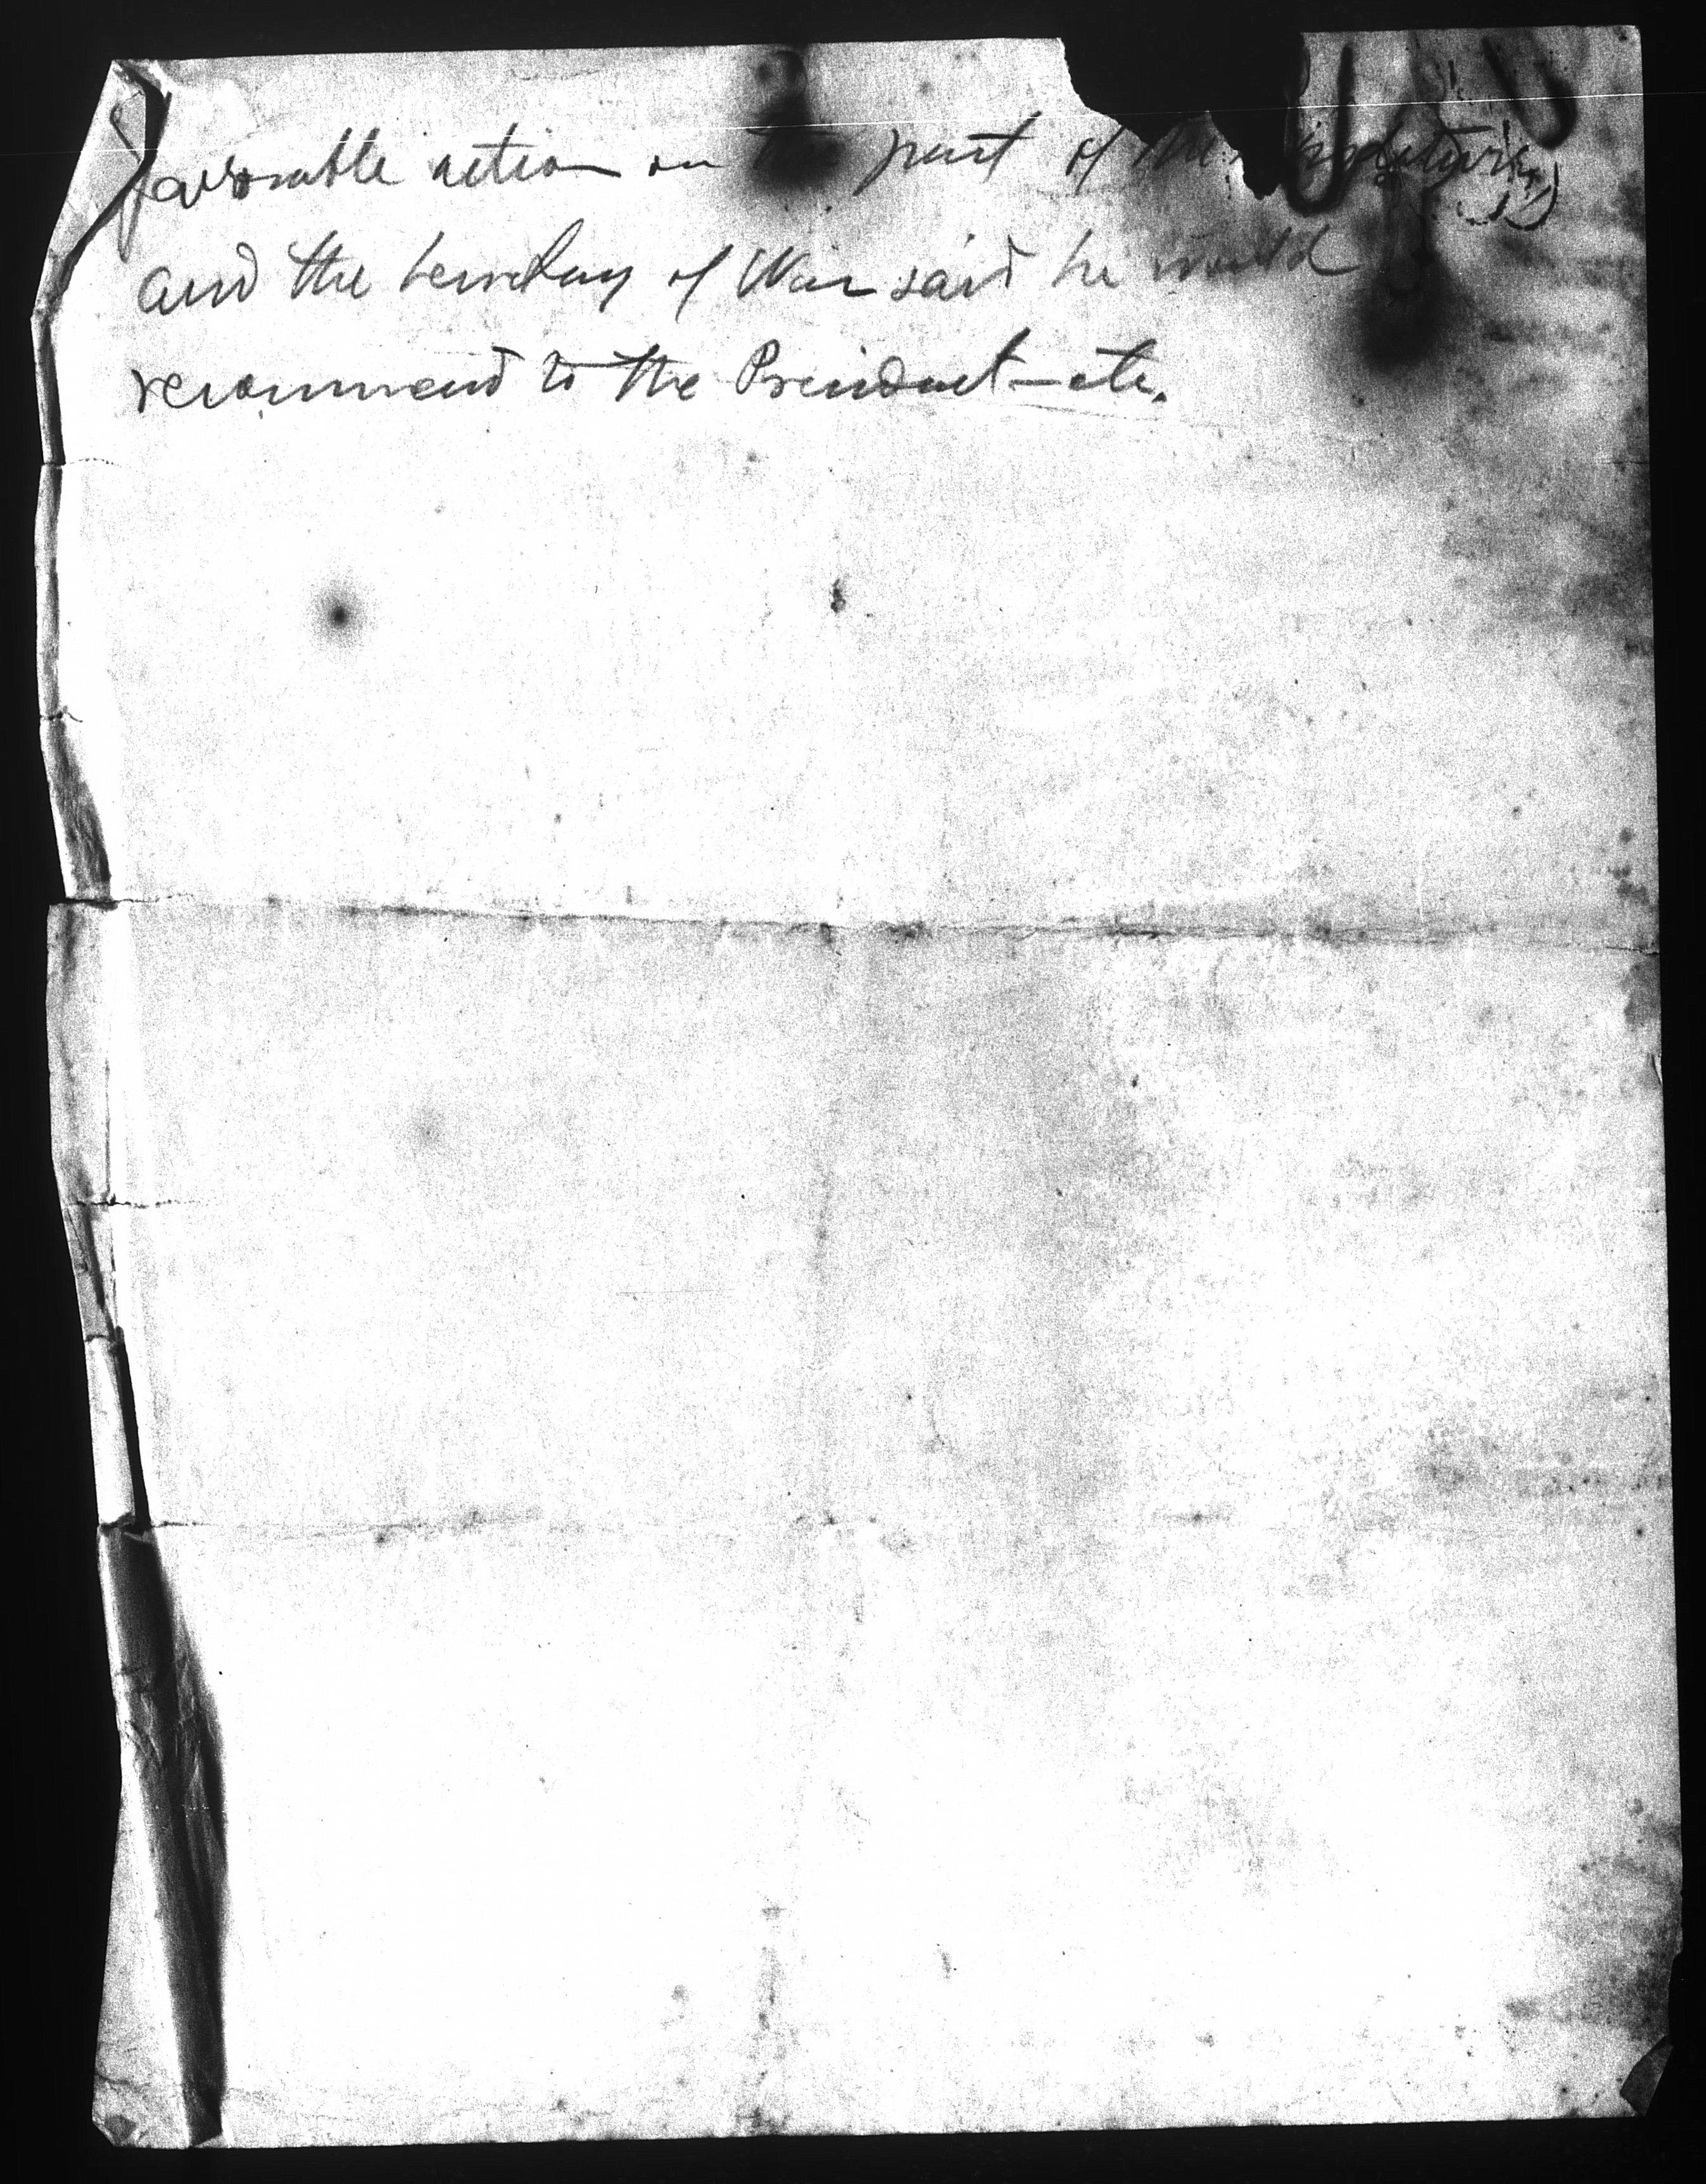 favorable action on the part of the Legislature,
and the Secretary of War said he would
recommend to the President—etc.